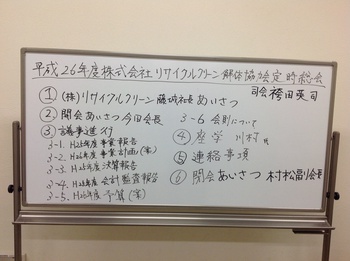 平成26年度株式会社リサイクルクリーン解体協会定時総会
司会 袴田英司
① (株)リサイクルクリーン 藤城社長 あいさつ
② 開会あいさつ 今田会長
③ 議事進行
3-1. H25年度事業報告
3-2. H26年度事業計画(案)
3-3. H25年度決算報告
3-4. H25年度会計監査報告
3-5. H26年度予算(案)
3-6 会則について
④ 座学 川村氏
⑤ 連絡事項
⑥ 閉会あいさつ 村松副会長